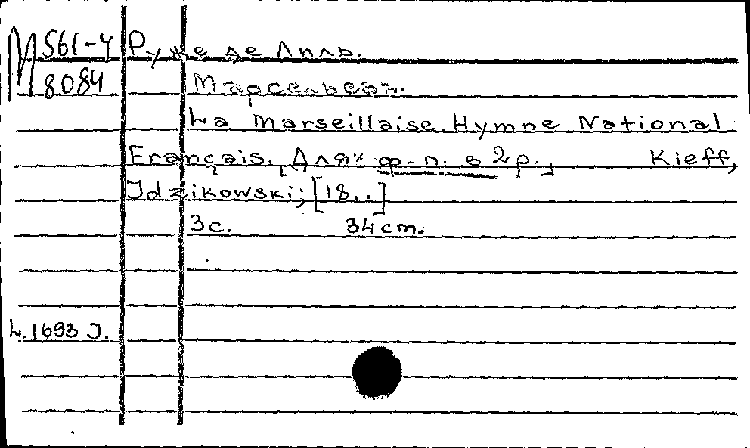 М 561-4 Руже де Лиль.
8084 Марсельеза.
La Marseillaise. Hymne National
Français. Для ф.-п. в 2 р., Kieff,
Idzikowski, [18..]
3с. 34 cm.
L. 1693 J.